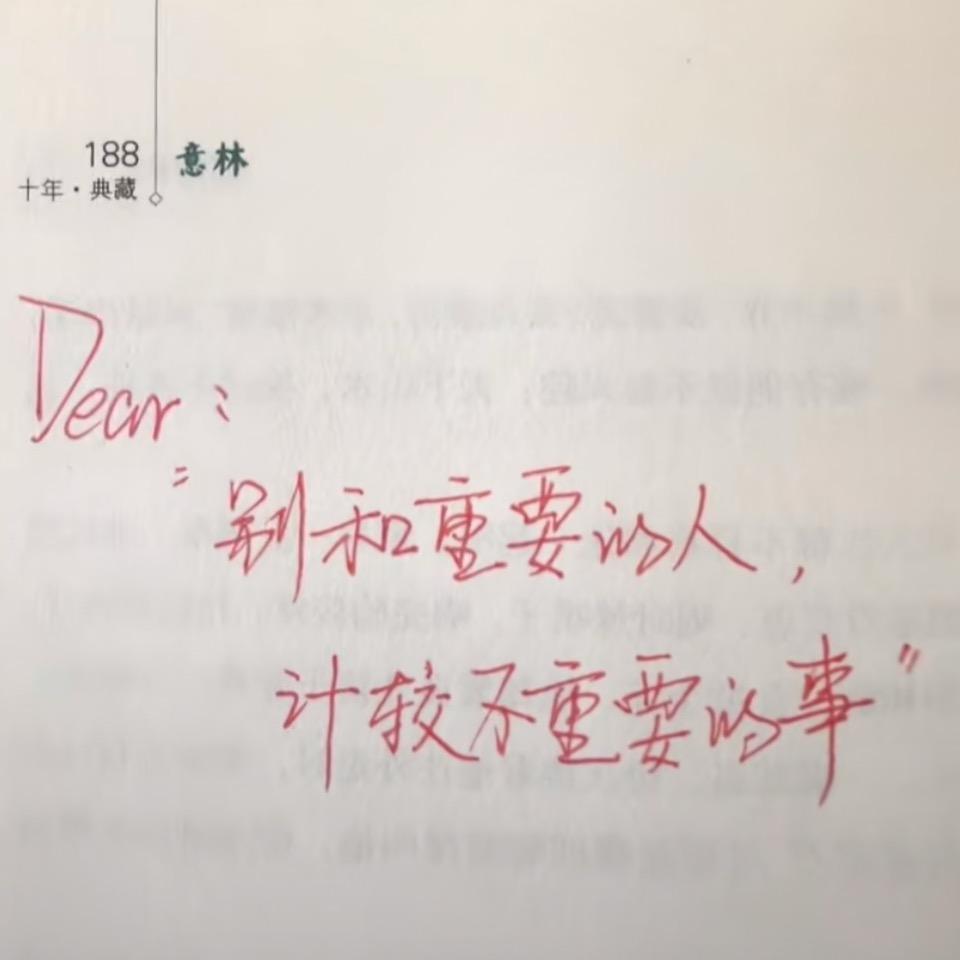 188 意林
十年·典藏
Dear:
"别和重要的人,
计较不重要的事"